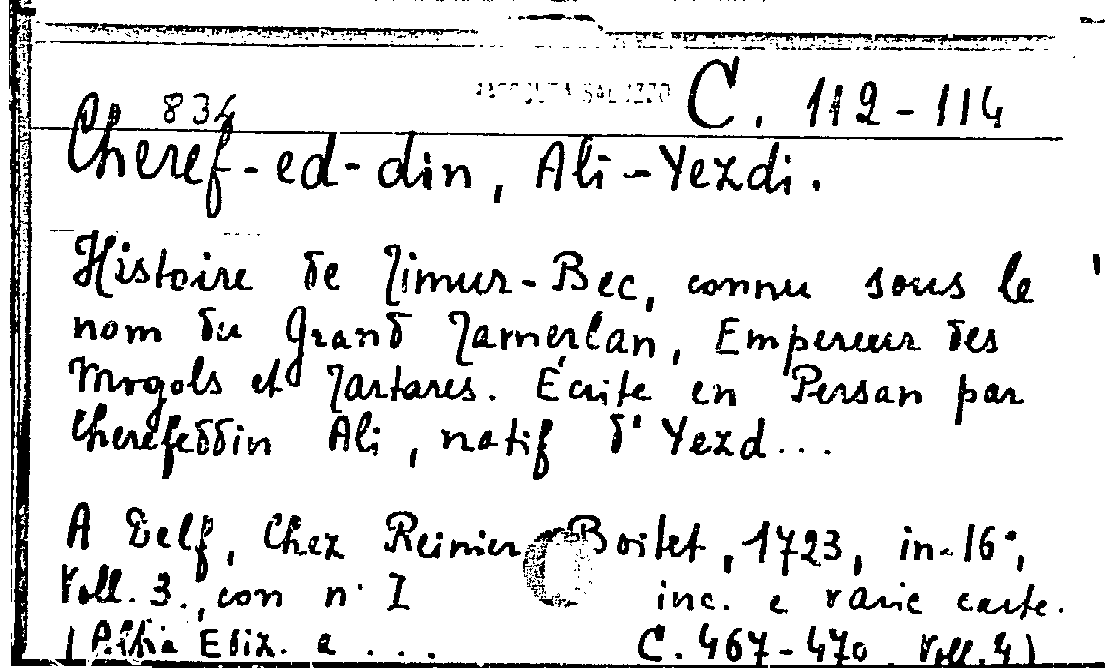 RACCOLTA SALUZZO
834
C. 112-114
Cheref-ed-din, Ali-Yezdi.
Histoire de Timur-Bec, connu sous le
nom du Grand Tamerlan, Empereur des
Mogols et Tartares. Écrite en Persan par
Cherefeddin Ali, natif d'Yezd...
A Delf, Chez Reinier Boitet, 1723, in-16°,
Voll. 3., con n° I inc. e varie carte.
(Altra Ediz. a ... C. 467-470. Voll. 4)